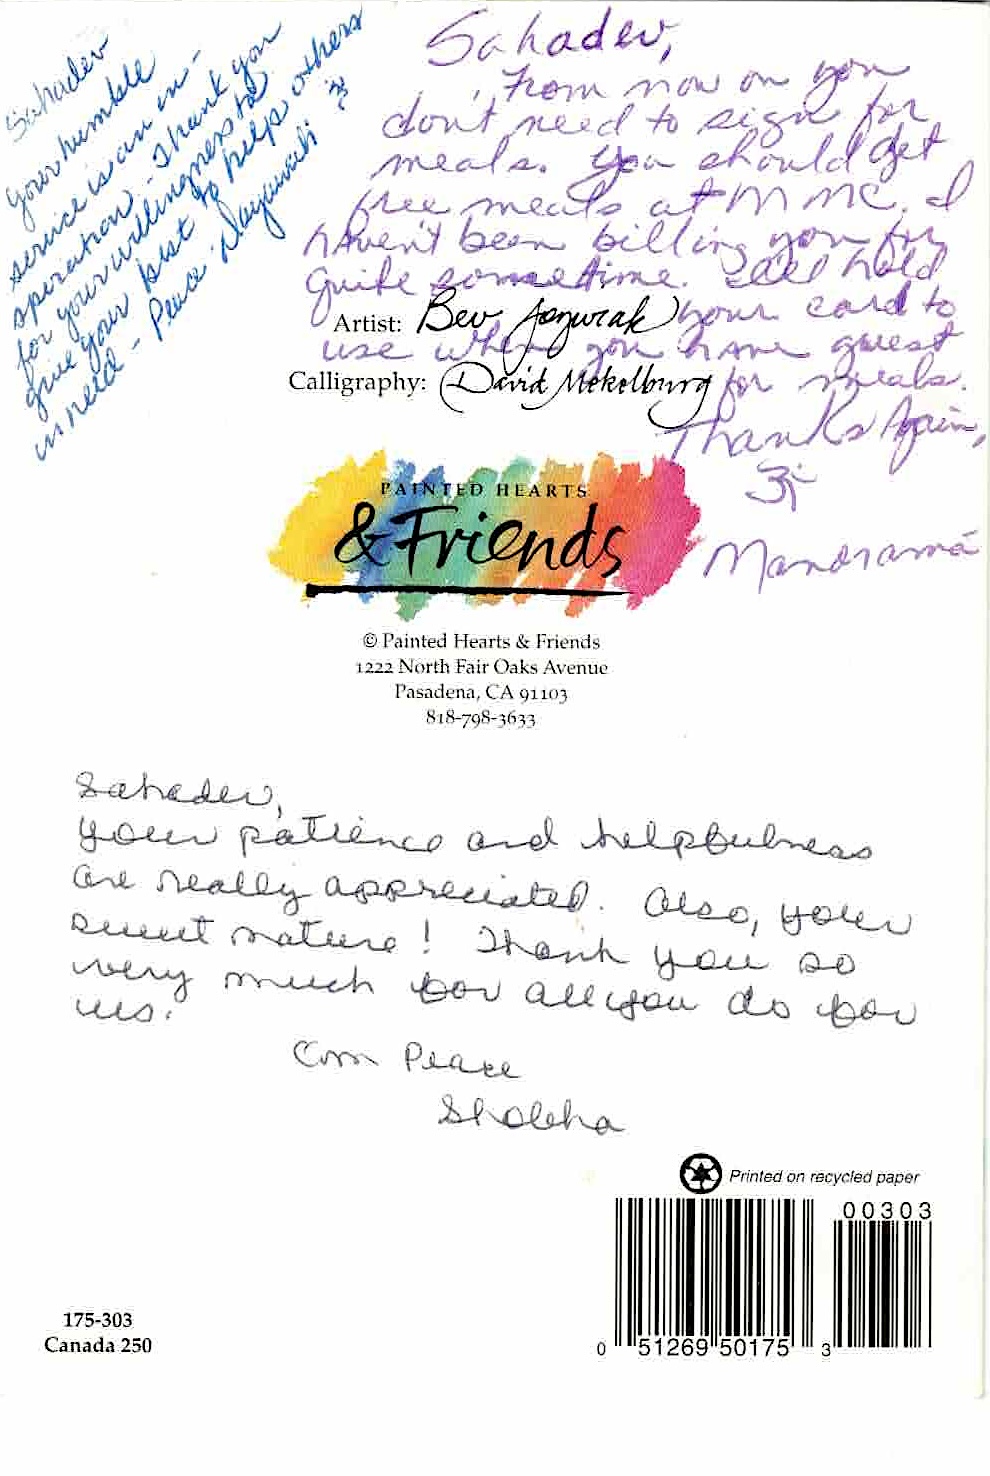 Sahadev
your humble
service is an in-
speration. Thank you
for your willingness to
give your best to help others
in need - Peace. Dayanidhi ॐ
Sahadev,
From now on you
don't need to sign for
meals. You should get
free meals at MMC. I
haven't been billing you for
quite sometime. I'll hold
your card to
use when you have guest
for meals.
Thanks Again,
ॐ
Manorama
Artist: Bev Jozwiak
Calligraphy: David Mekelburg
PAINTED HEARTS
& Friends
© Painted Hearts & Friends
1222 North Fair Oaks Avenue
Pasadena, CA 91103
818-798-3633
Sahadev,
your patience and helpfulness
are really appreciated. Also, your
sweet nature! Thank you so
very much for all you do for
us.
Om Peace
Printed on recycled paper
00303
0 51269 50175 3
175-303
Canada 250